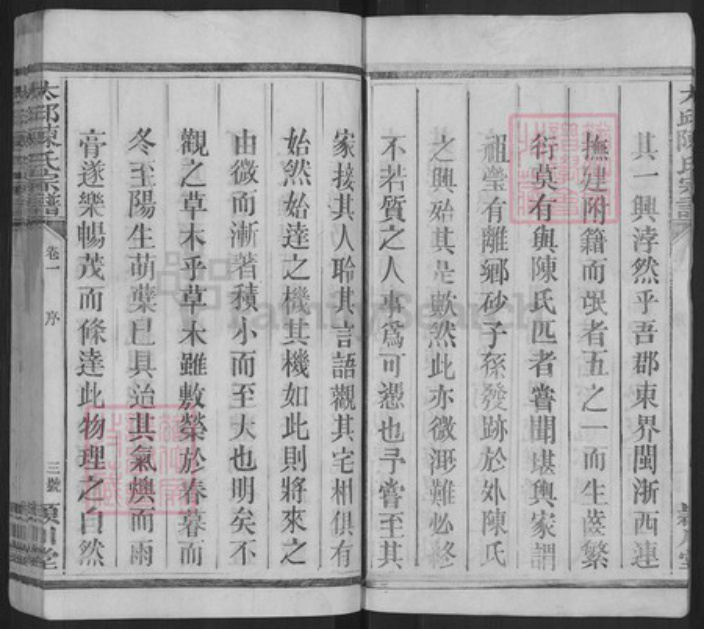 其一興浡然乎吾郡東界閩浙西連
撫建附籍而氓者五之一而生齒繁
衍莫有與陳氏匹者嘗聞堪輿家謂
祖塋有離鄉砂子孫發跡於外陳氏
之興殆其是歟然此亦微渺難必終
不若質之人事爲可憑也予嘗至其
家接其人聆其言語觀其宅相俱有
始然始達之機其機如此則將來之
由微而漸著積小而至大也明矣不
觀之草木乎草木雖敷榮於春暮而
冬至陽生萌蘖已具治其氣燠而雨
膏遂樂暢茂而條達此物理之自然
太邱陳氏宗譜
卷一
序
三號
潁川堂